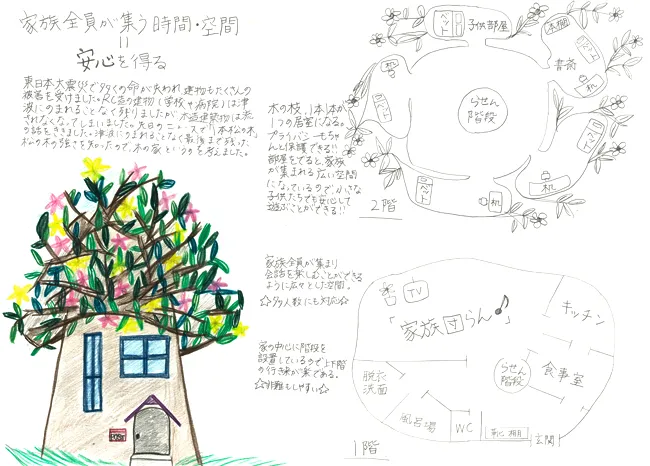 家族全員が集う時間・空間
=
安心を得る
東日本大震災で多くの命が失われ、建物もたくさんの
被害を受けました。RC造の建物(学校や病院)は津
波にのまれることなく残りましたが、木造建築物は流
されなくなってしまいました。先日のニュースで「1本松の木」
の話をききました。津波にのまれることなく最後まで残った
松の木の強さを知ったので、木の家というのを考えました。
POST
木の枝、1本1本が
1つの居室になる。
プライバシーもちゃ
んと保護できる!!
部屋をでると、家族
が集まれる広い空間
になっているので小さな
子供たちでも安心して
遊ぶことができる!!
ベット
子供部屋
本棚
ベット
書斎
机
机
ベット
らせん
階段
ベット
ベット
机
机
2階
家族全員が集まり
会話を楽しむことができる
ように広々とした空間。
☆多人数にも対応☆
家の中心に階段を
設置しているので上下階
の行き来が楽である。
☆非難もしやすい☆
TV
「家族団らん♪」
キッチン
らせん
階段
食事室
脱衣
洗面
風呂場
WC
靴棚
玄関
1階